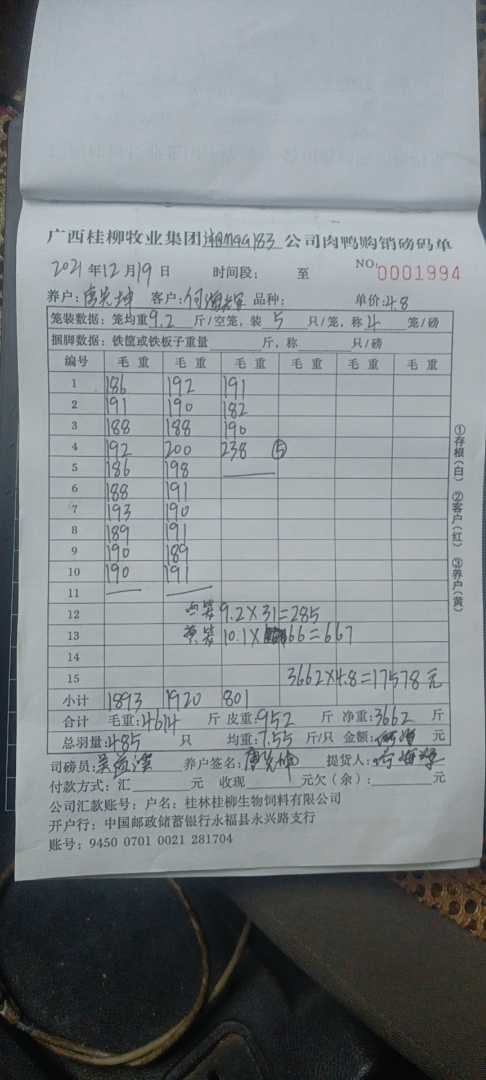 广西桂柳牧业集团 公司肉鸭购销磅码单
2021年12月19日 时间段: 至 NO: 0001994
养户: 客户:何海军 品种: 单价:4.8
笼装数据: 笼均重9.2斤/空笼, 装5只/笼, 称4笼/磅
捆脚数据: 铁筐或铁板子重量 斤, 称 只/磅
编号 毛重 毛重 毛重 毛重 毛重 毛重
1 186 192 191
2 191 190 182
3 188 188 190
4 192 200 238 ⑤
5 186 198
6 188 191
7 193 190
8 189 191
9 190 189
10 190 191
11
12 9.2×31=285
13 10.1×66=667
14
15 3662×4.8=17578元
小计 1893 1920 801
合计 毛重:4614 斤 皮重:952 斤 净重:3662 斤
总羽量:485 只 均重:7.55 斤/只 金额: 元
司磅员: 养户签名: 提货人:
付款方式: 汇 元 收现 元欠(余): 元
公司汇款账号: 户名: 桂林桂柳生物饲料有限公司
开户行: 中国邮政储蓄银行永福县永兴路支行
账号: 9450 0701 0021 281704
①存根(白) ②客户(红) ③养户(黄)